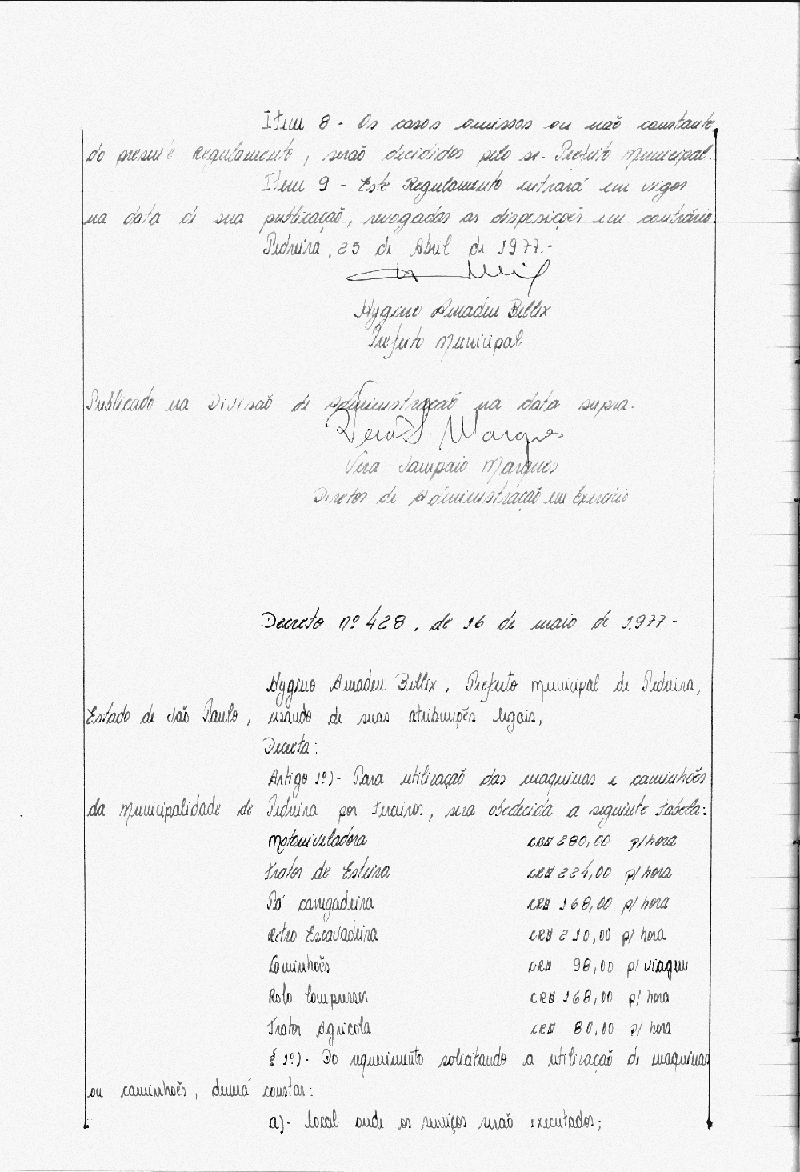 Item 8 - Os casos omissos ou não constante
do presente Regulamento, serão decididos pelo sr. Prefeito Municipal.
Item 9 - Este Regulamento entrará em vigor
na data de sua publicação, revogadas as disposições em contrário.
Pedreira, 25 de Abril de 1977.-
Hygino Amadeu Bellix
Prefeito Municipal
Publicado na Divisão de Administração na data supra.
Vera S Marques
Vera Sampaio Marques
Diretor de Administração em Exercício
Decreto nº 428, de 16 de maio de 1977-
Hygino Amadeu Bellix, Prefeito Municipal de Pedreira,
Estado de São Paulo, usando de suas atribuições legais,
Decreta:
Artigo 1º)- Para utilização das maquinas e caminhões
da Municipalidade de Pedreira por Terceiros, sera obedecida a seguinte tabela:
Motoniveladora CR$ 280,00 p/hora
Trator de Esteira CR$ 224,00 p/hora
Pá carregadeira CR$ 168,00 p/hora
Retro Escavadeira CR$ 210,00 p/hora
Caminhões CR$ 98,00 p/viagem
Rolo Compressor CR$ 168,00 p/hora
Trator Agricola CR$ 80,00 p/hora
§ 1º)- Do requerimento solicitando a utilização de maquinas
ou caminhões, deverá constar:
a)- local onde os serviços serão executados;